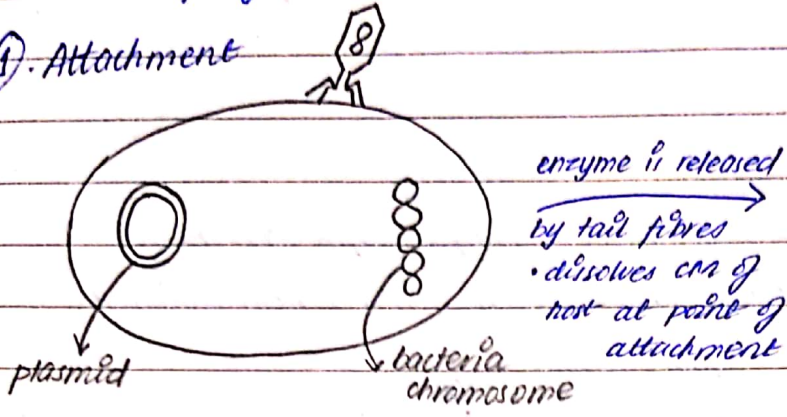 ①. Attachment
enzyme is released
by tail fibres
• dissolves cm of
host at point of
attachment
plasmid
bacteria
chromosome